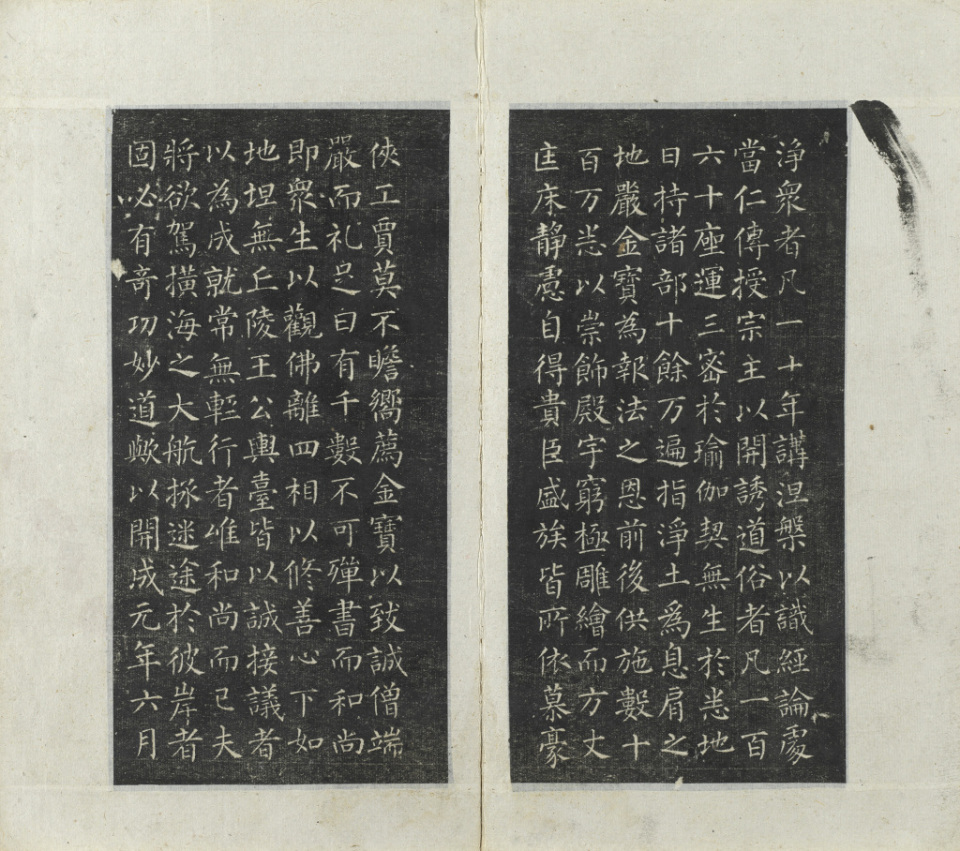 淨衆者凡一十年講涅槃以識經論處
當仁傳授宗主以開誘道俗者凡一百
六十座運三密於瑜伽契無生於悉地
日持諸部十餘万遍指淨土為息肩之
地嚴金寶為報法之恩前後供施數十
百万悉以崇飾殿宇窮極雕繪而方丈
匡床靜慮自得貴臣盛族皆所依慕豪
俠工賈莫不瞻嚮薦金寶以致誠僧端
嚴而礼足日有千數不可殫書而和尚
即衆生以觀佛離四相以修善心下如
地坦無丘陵王公輿臺皆以誠接議者
以為成就常無輕行者唯和尚而已夫
將欲駕橫海之大航拯迷途於彼岸者
固必有奇功妙道歟以開成元年六月